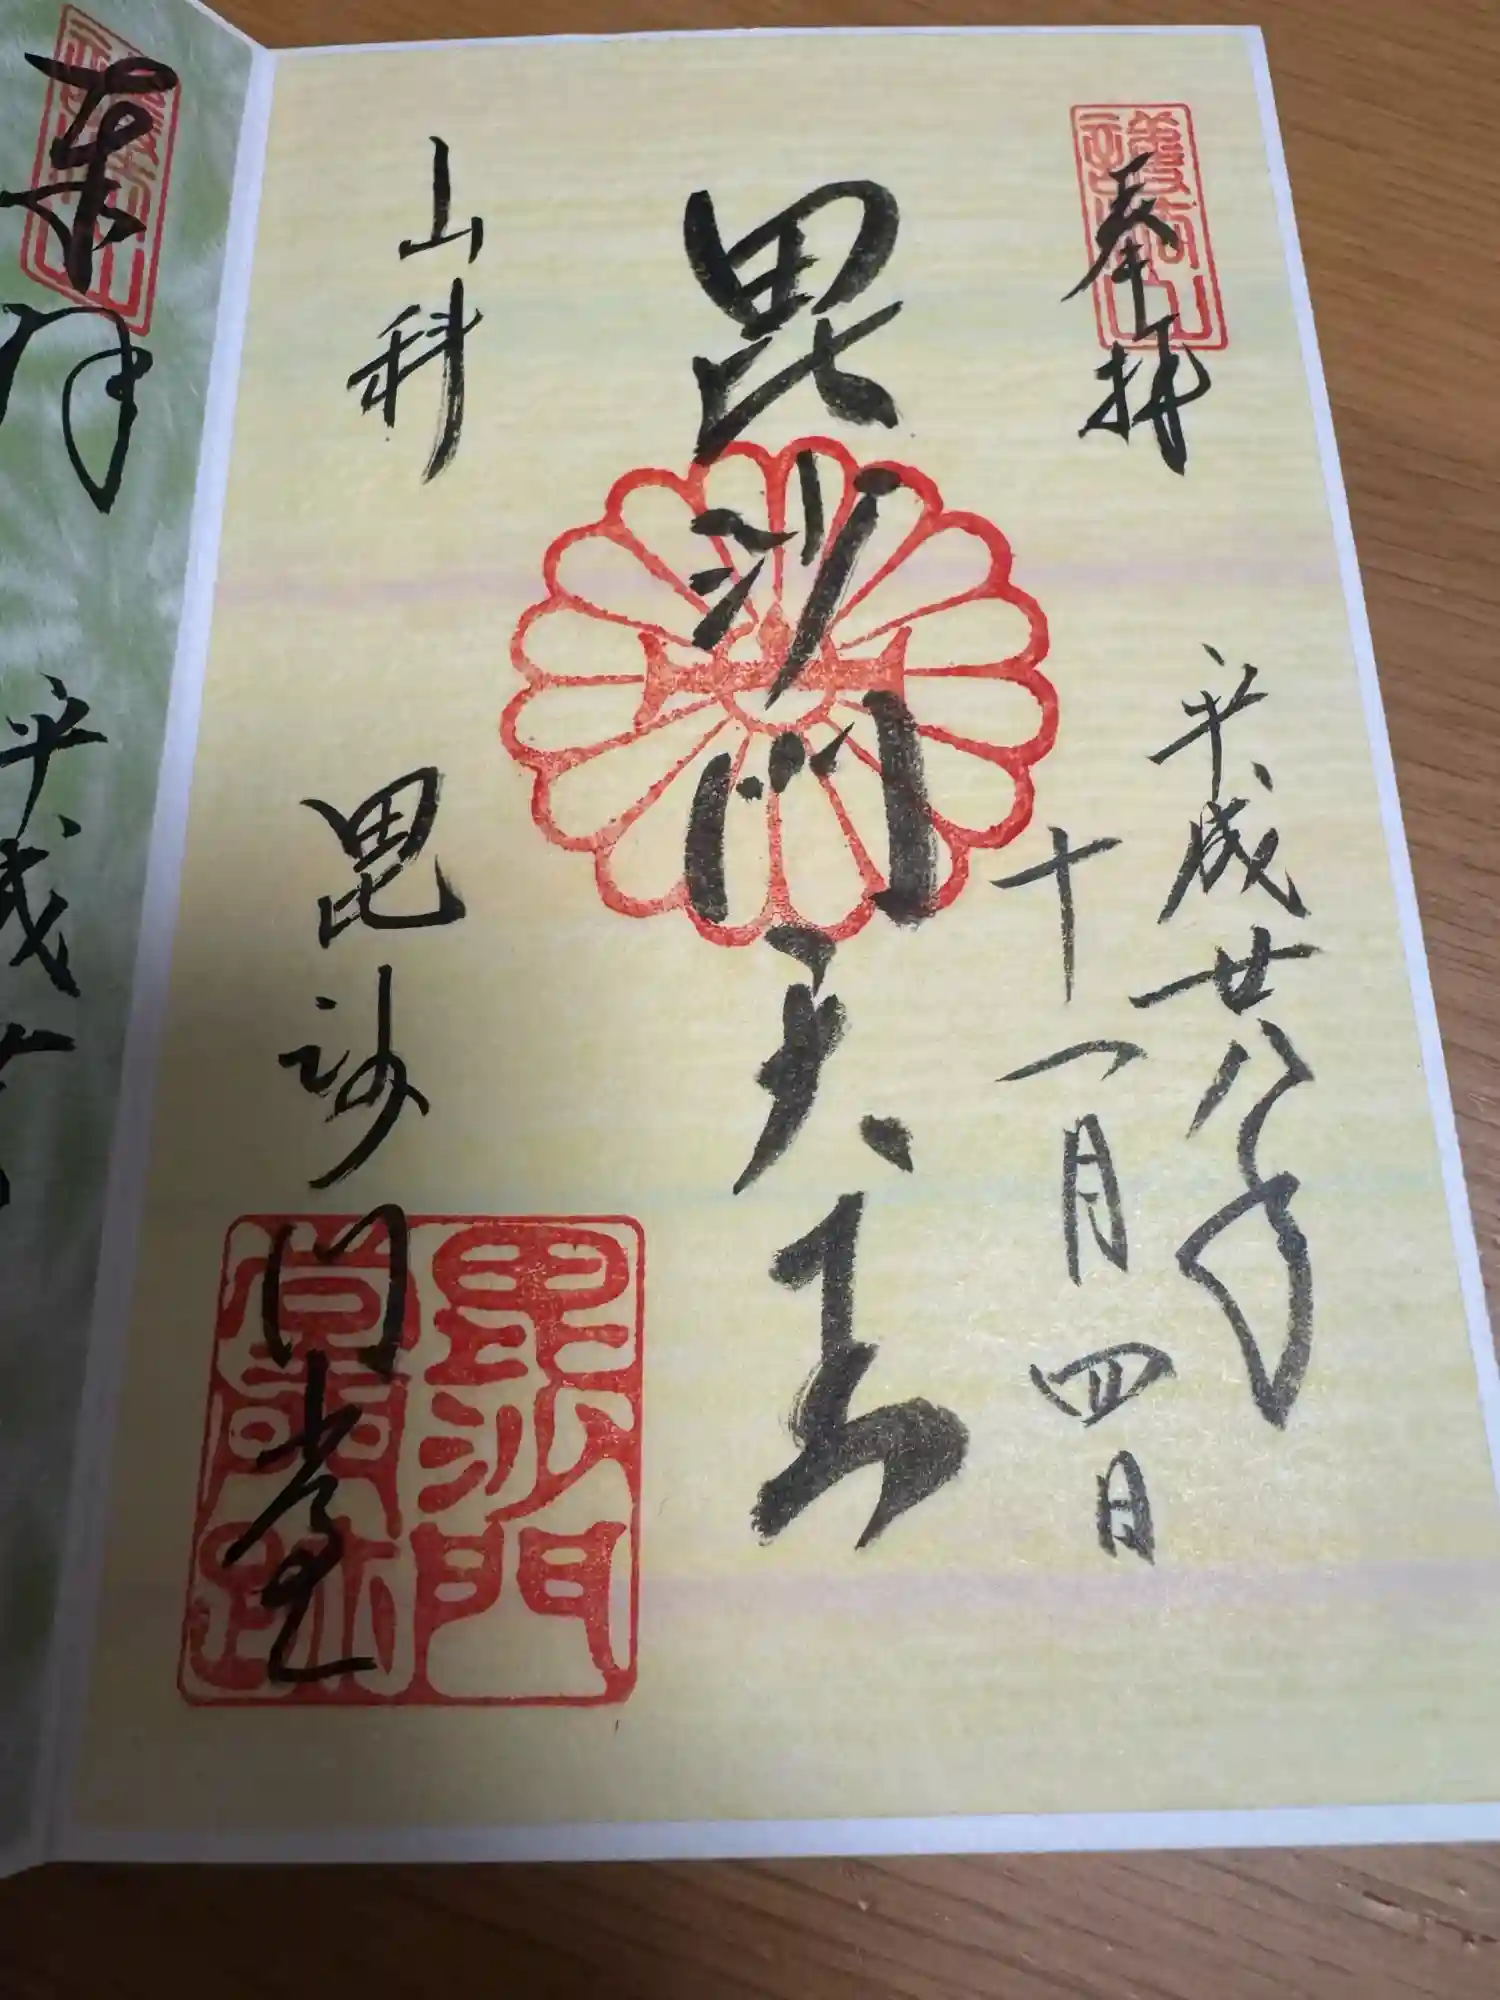 奉拝
平成廿八年
十一月四日
毘沙門天王
山科
毘沙門堂
護法山
毘沙門
堂門跡
奉拝
平成